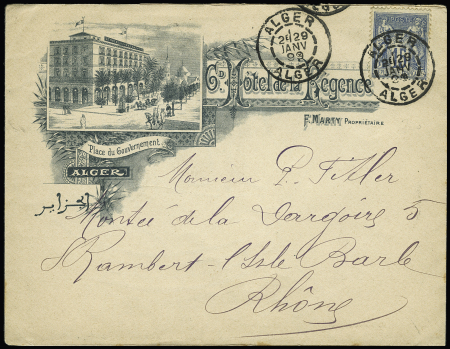 ALGER
2E 29
JANV
98
ALGER
ALGER
ALGER
Gd Hôtel de la Régence
F. MARTY PROPRIÉTAIRE
Place du Gouvernement.
ALGER
الجزاير
Monsieur P.
Montée de la 5
St Rambert-l'Isle Barbe
Rhône